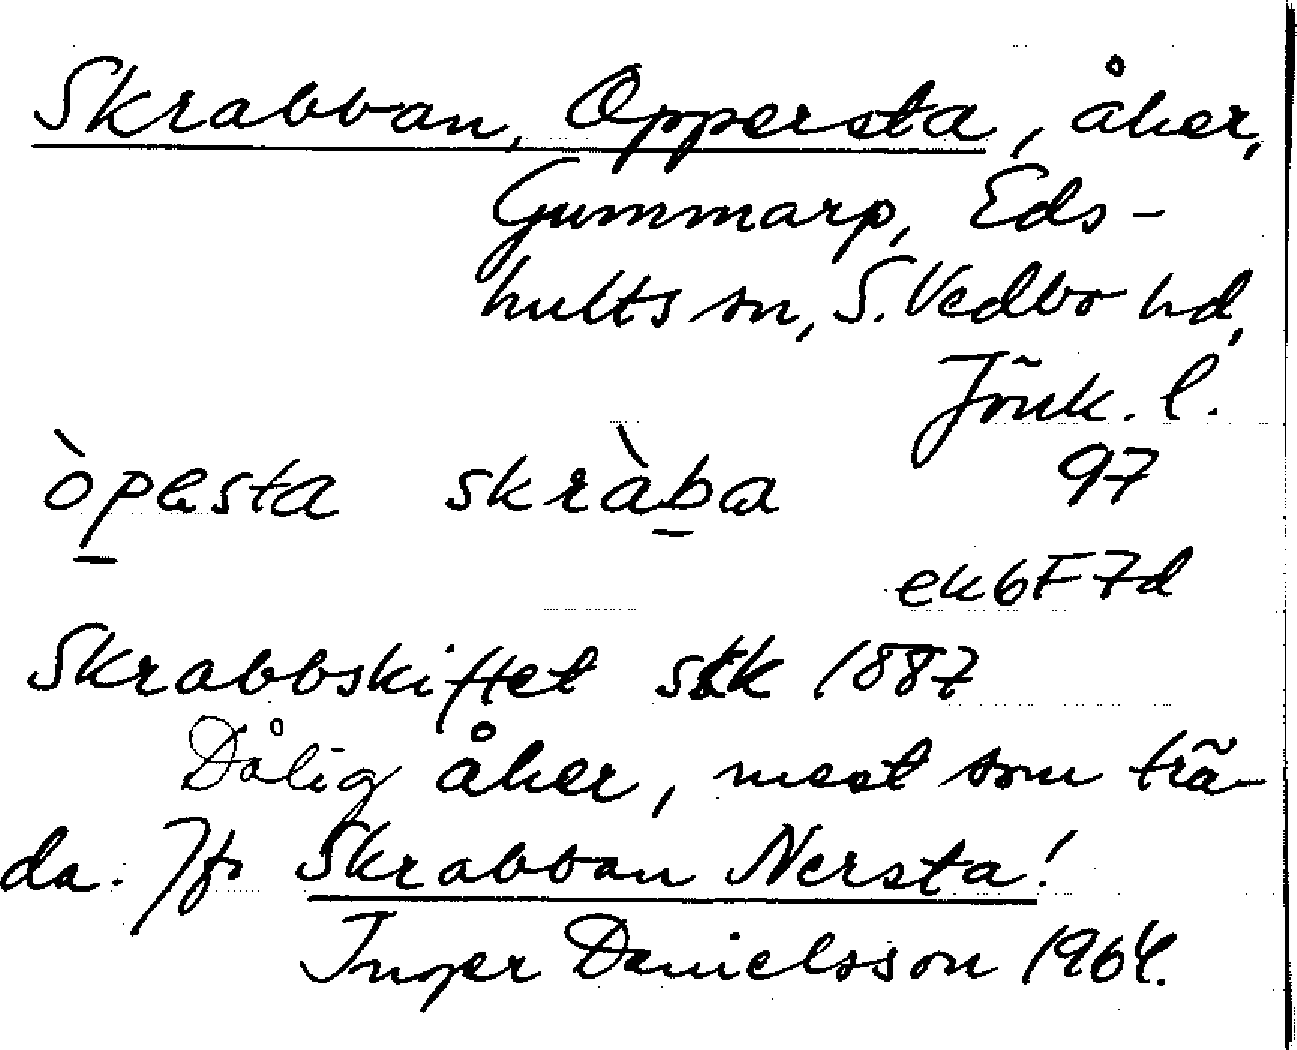 Skrabban, Oppersta, åker,
Gummarp, Eds-
hults sn, S. Vedbo hd,
Jönk. l.
òpəsta skràba 97
ek6F7d
Skrabbskiftet stk 1887
Dålig åker, mest som trä-
da. Jfr Skrabban Nersta!
Inger Danielsson 1964.